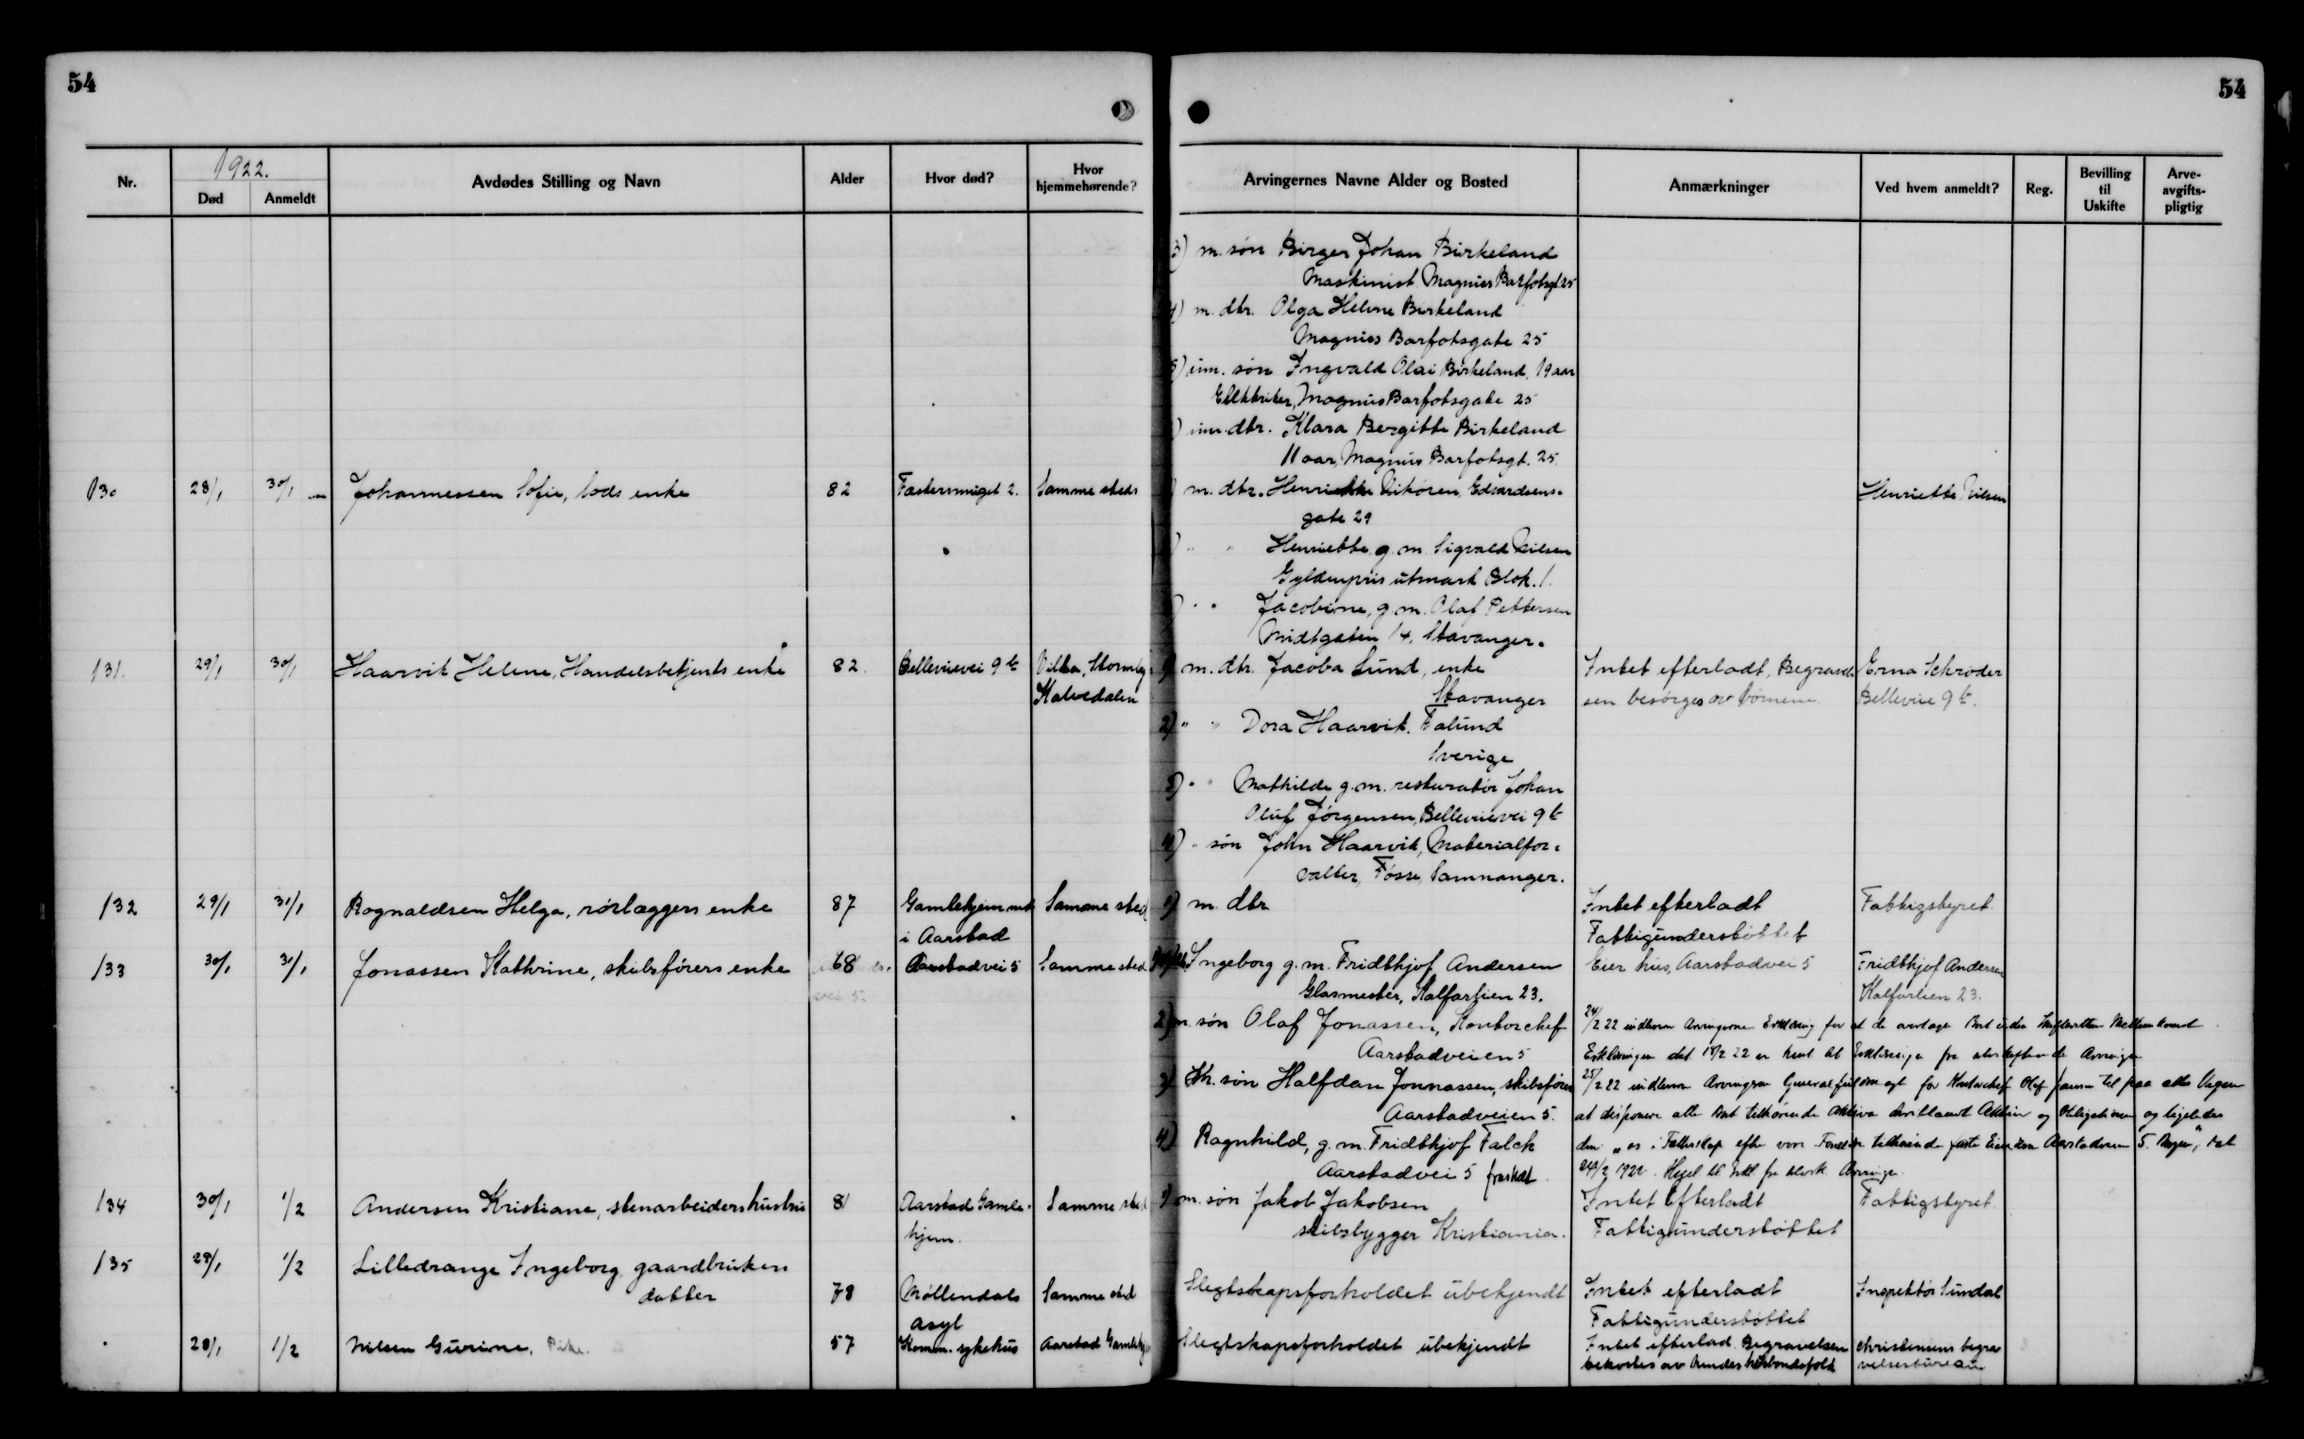 54
54
Nr.
1922.
Død
Anmeldt
Avdødes Stilling og Navn
Alder
Hvor død?
Hvor
hjemmehørende?
Arvingernes Navne Alder og Bosted
Anmærkninger
Ved hvem anmeldt?
Reg.
Bevilling
til
Uskifte
Arve-
avgifts-
pligtig
3) m. søn Birger Johan Birkeland
Maskinist, Magnus Barfotsgt. 25
4) m. dtr. Olga Helene Birkeland
Magnus Barfotsgate 25
5) um. søn Ingvald Olai Birkeland, 19 aar
Elektriker, Magnus Barfotsgate 25
) um. dtr. Klara Bergitte Birkeland
11 aar, Magnus Barfotsgt. 25.
130 28/1 30/1 Johannessen Sofie, lods enke 82 Fastersmuget 2. Samme steds ) m. dtr. Henriette Edvardsens-
gate 29
Henriette Nilsen
) " " Henriette g. m. Sigvald Nilsen
Gyldenpris utmark Blok. 1.
) " " Jacobine, g. m. Olaf Pettersen
Midtgaten 14, Stavanger.
131. 29/1 30/1 Haarvik Helene, Handelsbetjents enke 82. Bellevuevei 9 b Villa, Storm
Kalvedalen
1) m. dtr. Jacoba Lund, enke
Stavanger
Intet efterladt, Begravel
sen besørges av børnene
Erna Schrøder
Bellevue 9 b.
2) " " Dora Haarvik. Falund
Sverige
3) " " Mathilde g. m. resturatør Johan
Oluf Jørgensen, Bellevuevei 9 b
4) " søn John Haarvik, Materialfor-
valter, Fosse, Samnanger.
132 29/1 31/1 Rognaldsen Helga, rørlæggers enke 87 Gamlehjemmet
i Aarstad
Samme sted 1) m. dtr
Intet efterladt
Fattigunderstøttet
Fattigstyret.
133 30/1 31/1 Jonassen Kathrine, skibsførers enke 68 Aarstadvei 5 Samme sted
Ingeborg g. m. Fridthjof Andersen
Glasmester, Kalfarlien 23.
Eier hus, Aarstadvei 5
Fridthjof Andersen
Kalfarlien 23.
2) m. søn Olaf Jonassen, Kontorchef
Aarstadveien 5
24/2 22 indleverer Arvingerne Erklæring for at de overtage Boet uden Skifterettens Mellemkomst
3) m. søn Halfdan Jonnassen, skibsfører
Aarstadveien 5.
25/2 22 indleverer Arvingerne Generalfuldmagt for Kontorchef Olaf Jonassen til paa alles Vegne
at disponere alle Boet tilhørende Aktiva deriblandt Aktier og Obligationer og ligeledes
4) Ragnhild, g. m. Fridthjof Falck
Aarstadvei 5 fraskilt.
134 30/1 1/2 Andersen Kristiane, stenarbeiders hustru 81 Aarstad Gamle-
hjem.
Samme sted 1) m. søn Jakob Jakobsen
skibsbygger Kristiania.
Intet efterladt
Fattigunderstøttet
Fattigstyret.
135 29/1 1/2 Lilledrange Ingeborg gaardbrukers
datter
78 Møllendals
asyl
Samme sted Slegtskapsforholdet ubekjendt
Intet efterladt
Fattigunderstøttet
Inspektør Sundal
28/1 1/2 Nilsen Gurine, Pike. 57 Komm. sykehus Aarstad Gamlehj Slegtskapsforholdet ubekjendt
Intet efterlad Begravelsen
bekostes av hendes husbondsfolk
Christensens begra-
velsesbureau